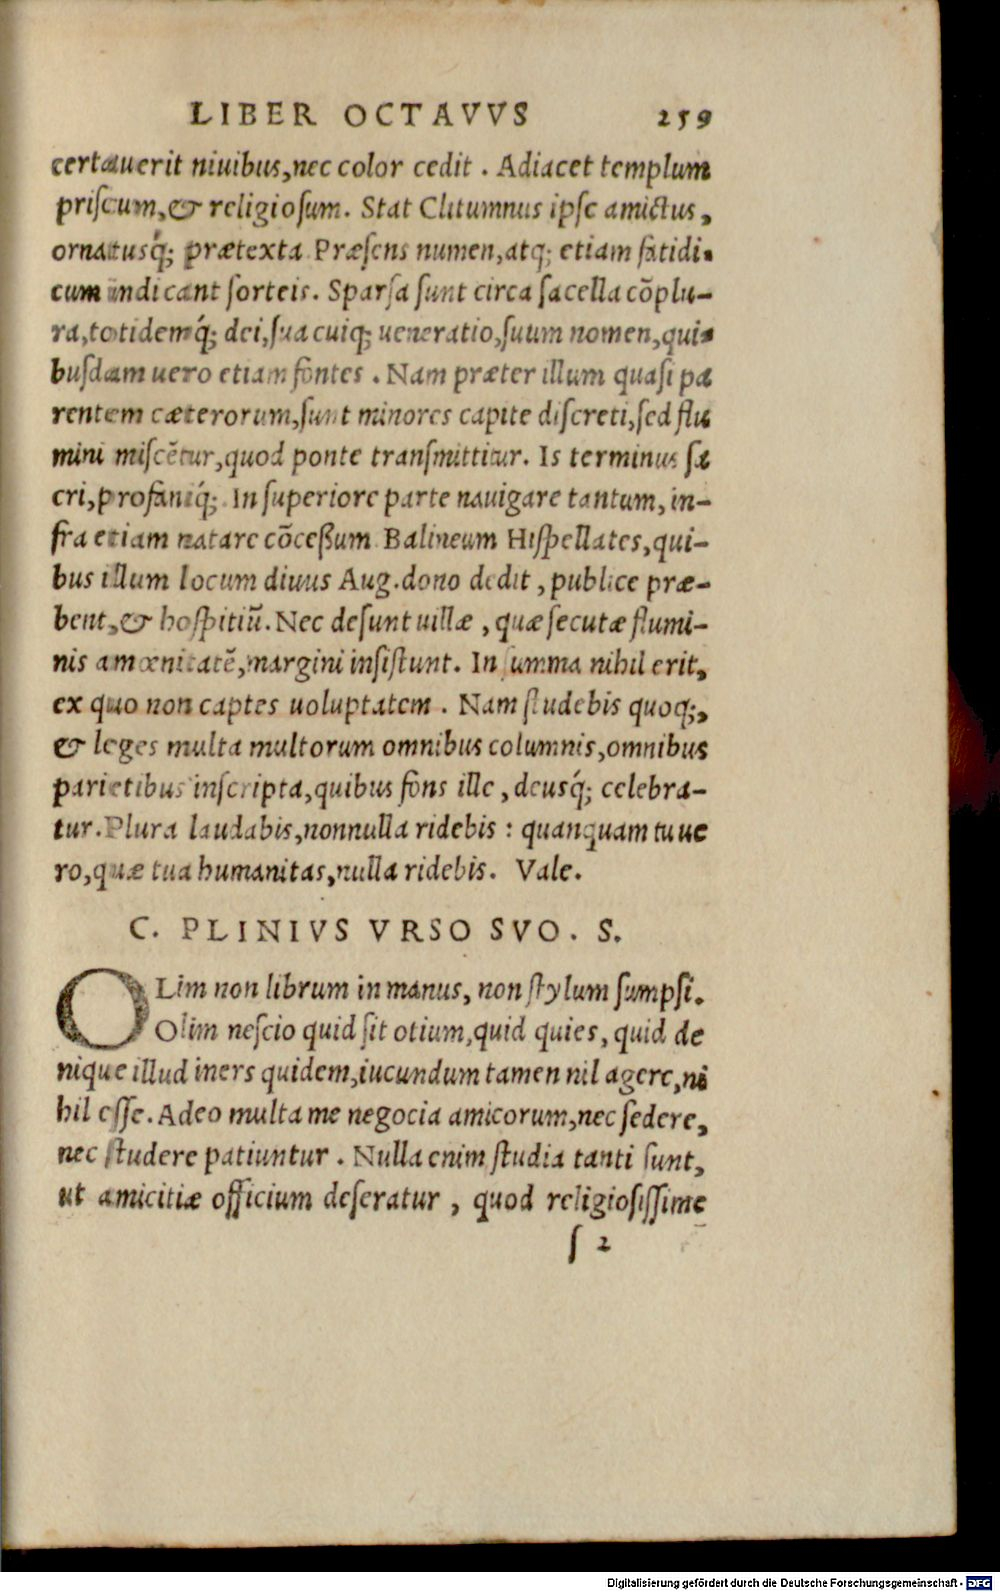 LIBER OCTAVVS 259
certauerit niuibus, nec color cedit. Adiacet templum
priscum, & religiosum. Stat Clitumnus ipse amictus,
ornatusq́; prætexta Præsens numen, atq; etiam fatidi-
cum indicant sorteis. Sparsa sunt circa sacella cōplu-
ra, totidemq́; dei, sua cuiq; ueneratio, suum nomen, qui-
busdam uero etiam fontes. Nam præter illum quasi pa
rentem cæterorum, sunt minores capite discreti, sed flu
mini miscētur, quod ponte transmittitur. Is terminus sa
cri, profaniq́;. In superiore parte nauigare tantum, in-
fra etiam natare cōceßum Balineum Hispellates, qui-
bus illum locum diuus Aug. dono dedit, publice præ-
bent, & hospitiū. Nec desunt uillæ, quæ secutæ flumi-
nis amœnitatē, margini insistunt. In summa nihil erit,
ex quo non captes uoluptatem. Nam studebis quoq;,
& leges multa multorum omnibus columnis, omnibus
parietibus inscripta, quibus fons ille, deusq́; celebra-
tur. Plura laudabis, nonnulla ridebis: quanquam tu ue
ro, quæ tua humanitas, nulla ridebis. Vale.
C. PLINIVS VRSO SVO. S.
OLim non librum in manus, non stylum sumpsi.
Olim nescio quid sit otium, quid quies, quid de
nique illud iners quidem, iucundum tamen nil agere, ni
hil esse. Adeo multa me negocia amicorum, nec sedere,
nec studere patiuntur. Nulla enim studia tanti sunt,
ut amicitiæ officium deseratur, quod religiosissime
ſ 2
Digitalisierung gefördert durch die Deutsche Forschungsgemeinschaft - DFG